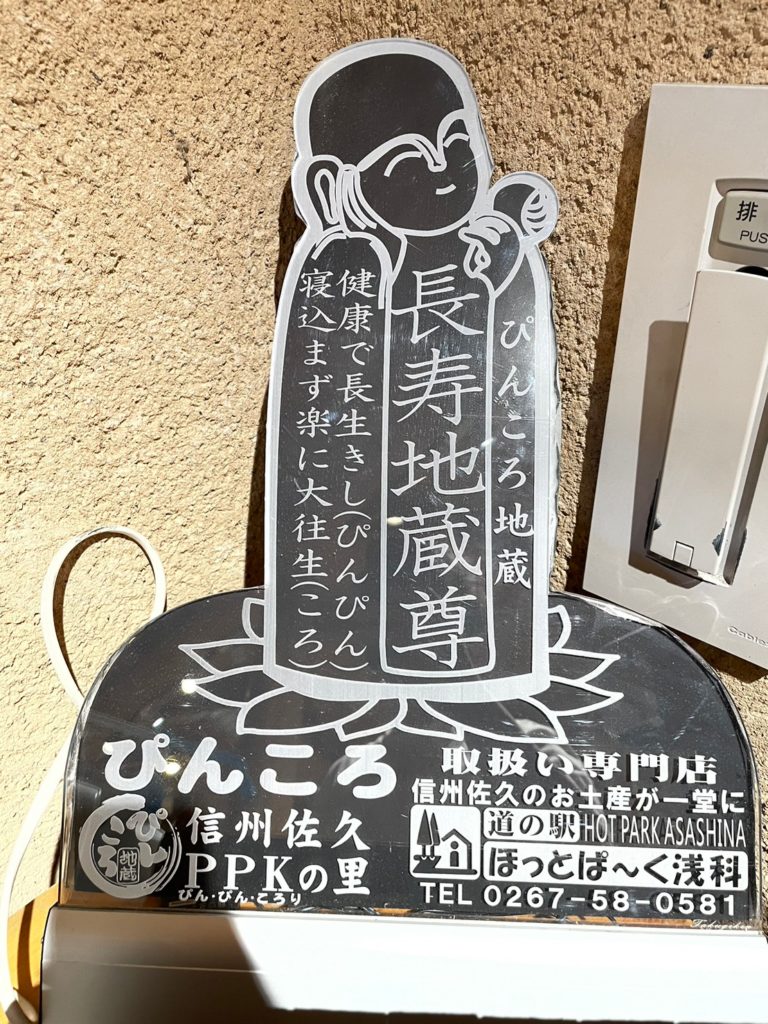 ぴんころ地蔵
長寿地蔵尊
健康で長生きし(ぴんぴん)
寝込まず楽に大往生(ころ)
ぴんころ
信州佐久
PPKの里
ぴん・ぴん・ころり
ぴんころ
地蔵
取扱い専門店
信州佐久のお土産が一堂に
道の駅 HOT PARK ASASHINA
ほっとぱ〜く浅科
TEL 0267-58-0581
排
PUS